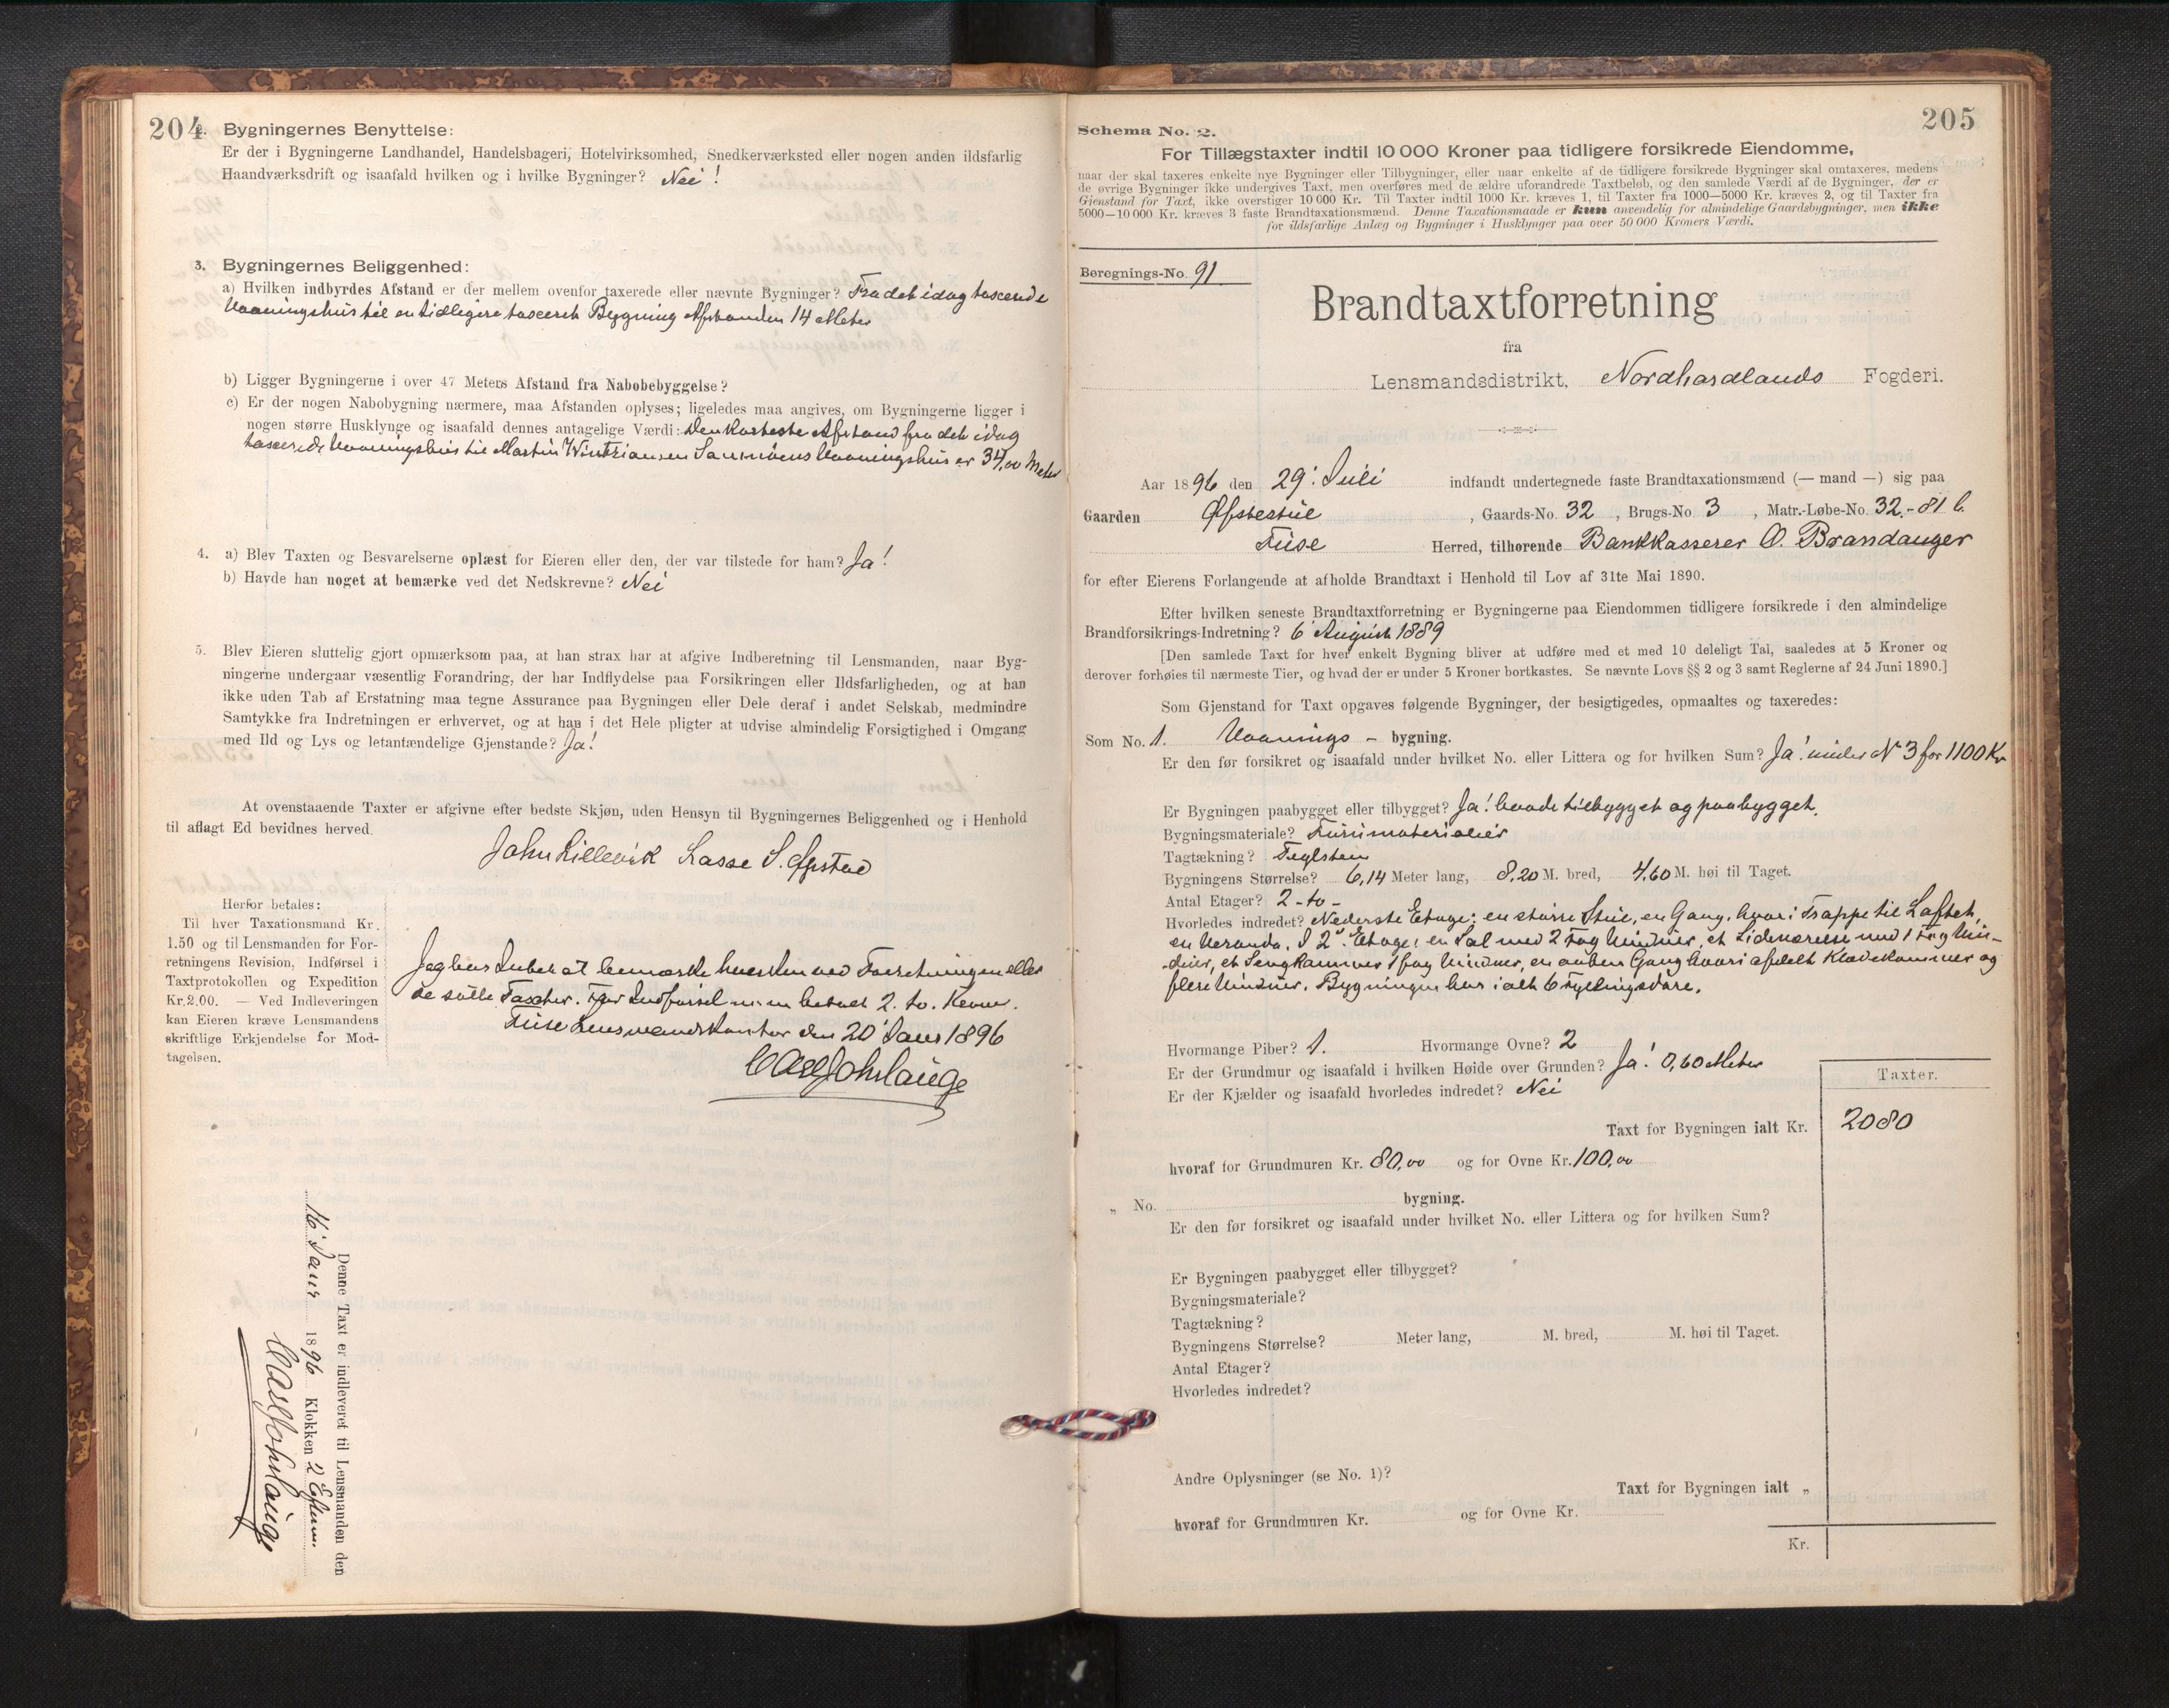 204
2. Bygningernes Benyttelse:
Er der i Bygningerne Landhandel, Handelsbageri, Hotelvirksomhed, Snedkerværksted eller nogen anden ildsfarlig
Haandværksdrift og isaafald hvilken og i hvilke Bygninger? Nei!
3. Bygningernes Beliggenhed:
a) Hvilken indbyrdes Afstand er der mellem ovenfor taxerede eller nævnte Bygninger? Fra det idag taxerede
Vaaningshus til en tidligere taxeret Bygning Afstanden 14 Meter
b) Ligger Bygningerne i over 47 Meters Afstand fra Nabobebyggelse?
c) Er der nogen Nabobygning nærmere, maa Afstanden oplyses; ligeledes maa angives, om Bygningerne ligger i
nogen større Husklynge og isaafald dennes antagelige Værdi: Den korteste Afstand fra det idag
taxerede Vaaningshus til Martin Vaaningshus er 34,00 Meter
4. a) Blev Taxten og Besvarelserne oplæst for Eieren eller den, der var tilstede for ham? Ja!
b) Havde han noget at bemærke ved det Nedskrevne? Nei
5. Blev Eieren sluttelig gjort opmærksom paa, at han strax har at afgive Indberetning til Lensmanden, naar Byg-
ningerne undergaar væsentlig Forandring, der har Indflydelse paa Forsikringen eller Ildsfarligheden, og at han
ikke uden Tab af Erstatning maa tegne Assurance paa Bygningen eller Dele deraf i andet Selskab, medmindre
Samtykke fra Indretningen er erhvervet, og at han i det Hele pligter at udvise almindelig Forsigtighed i Omgang
med Ild og Lys og letantændelige Gjenstande? Ja!
At ovenstaaende Taxter er afgivne efter bedste Skjøn, uden Hensyn til Bygningernes Beliggenhed og i Henhold
til aflagt Ed bevidnes herved.
John Lillevik Lasse S. Øfsteus
Herfor betales:
Til hver Taxationsmand Kr.
1.50 og til Lensmanden for For-
retningens Revision, Indførsel i
Taxtprotokollen og Expedition
Kr. 2.00. — Ved Indleveringen
kan Eieren kræve Lensmandens
skriftlige Erkjendelse for Mod-
tagelsen.
Jeg har Intet at bemærke hverken ved Forretningen eller
de satte Taxter. For Indførsel m.m betalt 2. to. Kroner.
Fuse Lensmandskontor den 20' Janr 1896
Carl Joh Lange
Denne Taxt er indleveret til Lensmanden den
16' Janr 1896 Klokken 2 Efterm.
Carl Joh Lange
205
Schema No. 2.
For Tillægstaxter indtil 10 000 Kroner paa tidligere forsikrede Eiendomme,
naar der skal taxeres enkelte nye Bygninger eller Tilbygninger, eller naar enkelte af de tidligere forsikrede Bygninger skal omtaxeres, medens
de øvrige Bygninger ikke undergives Taxt, men overføres med de ældre uforandrede Taxtbeløb, og den samlede Værdi af de Bygninger, der er
Gjenstand for Taxt, ikke overstiger 10 000 Kr. Til Taxter indtil 1000 Kr. kræves 1, til Taxter fra 1000—5000 Kr. kræves 2, og til Taxter fra
5000—10 000 Kr. kræves 3 faste Brandtaxationsmænd. Denne Taxationsmaade er kun anvendelig for almindelige Gaardsbygninger, men ikke
for ildsfarlige Anlæg og Bygninger i Husklynger paa over 50 000 Kroners Værdi.
Beregnings-No. 91
Brandtaxtforretning
fra
Lensmandsdistrikt, Nordhordlands Fogderi.
Aar 1896 den 29' Juli indfandt undertegnede faste Brandtaxationsmænd (— mand —) sig paa
Gaarden Øfstestue, Gaards-No. 32, Brugs-No. 3, Matr.-Løbe-No. 32.-81 b.
Fuse Herred, tilhørende Bankkasserer O. Brandanger
for efter Eierens Forlangende at afholde Brandtaxt i Henhold til Lov af 31te Mai 1890.
Efter hvilken seneste Brandtaxtforretning er Bygningerne paa Eiendommen tidligere forsikrede i den almindelige
Brandforsikrings-Indretning? 6 August 1889
[Den samlede Taxt for hver enkelt Bygning bliver at udføre med et med 10 deleligt Tal, saaledes at 5 Kroner og
derover forhøies til nærmeste Tier, og hvad der er under 5 Kroner bortkastes. Se nævnte Lovs §§ 2 og 3 samt Reglerne af 24 Juni 1890.]
Som Gjenstand for Taxt opgaves følgende Bygninger, der besigtigedes, opmaaltes og taxeredes:
Som No. 1. Vaanings - bygning.
Er den før forsikret og isaafald under hvilket No. eller Littera og for hvilken Sum? Ja! under No 3 for 1100 Kr
Er Bygningen paabygget eller tilbygget? Ja! baade tilbygget og paabygget.
Bygningsmateriale? Furumaterialier
Tagtækning? Teglsten
Bygningens Størrelse? 6,14 Meter lang, 8,20 M. bred, 4,60 M. høi til Taget.
Antal Etager? 2 - to -
Hvorledes indredet? Nederste Etage: en større Stue, en Gang, hvori Trappe til Loftet,
en Veranda. I 2' Etage: en Sal med 2 Fag Vinduer, et Sideværelse med 1 Fag Vin-
duer, et Sengkammer 1 fag Vinduer, en aaben Gang hvori afdelt Klædekammer og
flere Vinduer. Bygningen har ialt 6 Fyldingsdøre.
Hvormange Piber? 1. Hvormange Ovne? 2
Er der Grundmur og isaafald i hvilken Høide over Grunden? Ja! 0,60 Meter
Er der Kjælder og isaafald hvorledes indredet? Nei
Taxter.
Taxt for Bygningen ialt Kr. 2080
hvoraf for Grundmuren Kr. 80,00 og for Ovne Kr. 100,00
„ No. bygning.
Er den før forsikret og isaafald under hvilket No. eller Littera og for hvilken Sum?
Er Bygningen paabygget eller tilbygget?
Bygningsmateriale?
Tagtækning?
Bygningens Størrelse? Meter lang, M. bred, M. høi til Taget.
Antal Etager?
Hvorledes indredet?
Andre Oplysninger (se No. 1)?
Taxt for Bygningen ialt „
hvoraf for Grundmuren Kr. og for Ovne Kr.
Kr.